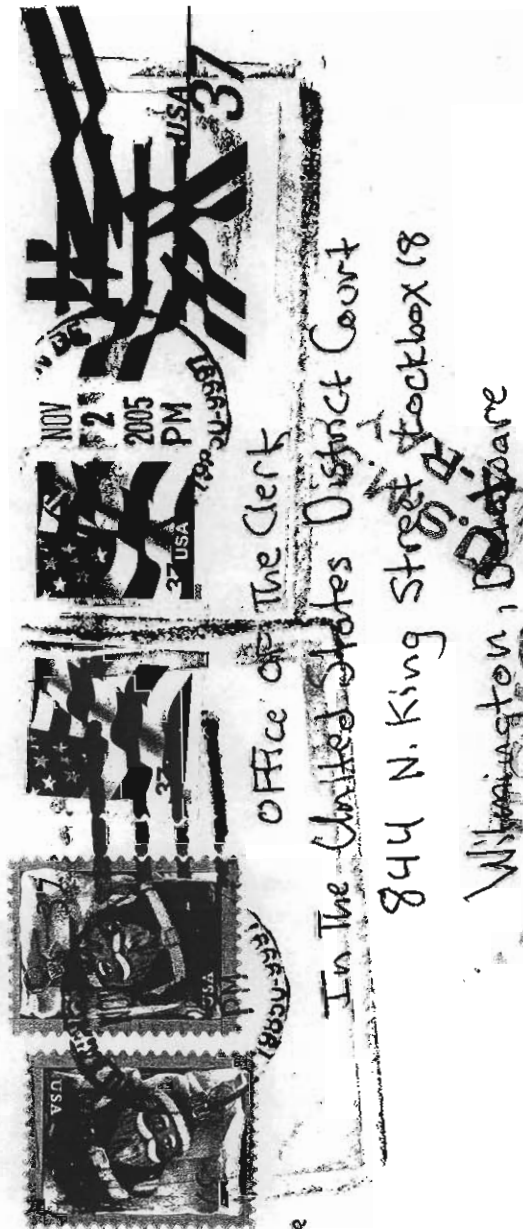 USA
37
NOV
2
2005
PM
37 USA
37
USA
PM
USA
OFFice OF The Clerk
In The United States District Court
844 N. King Street Lockbox 18
Wilmington, Delaware
U.S.M.S.